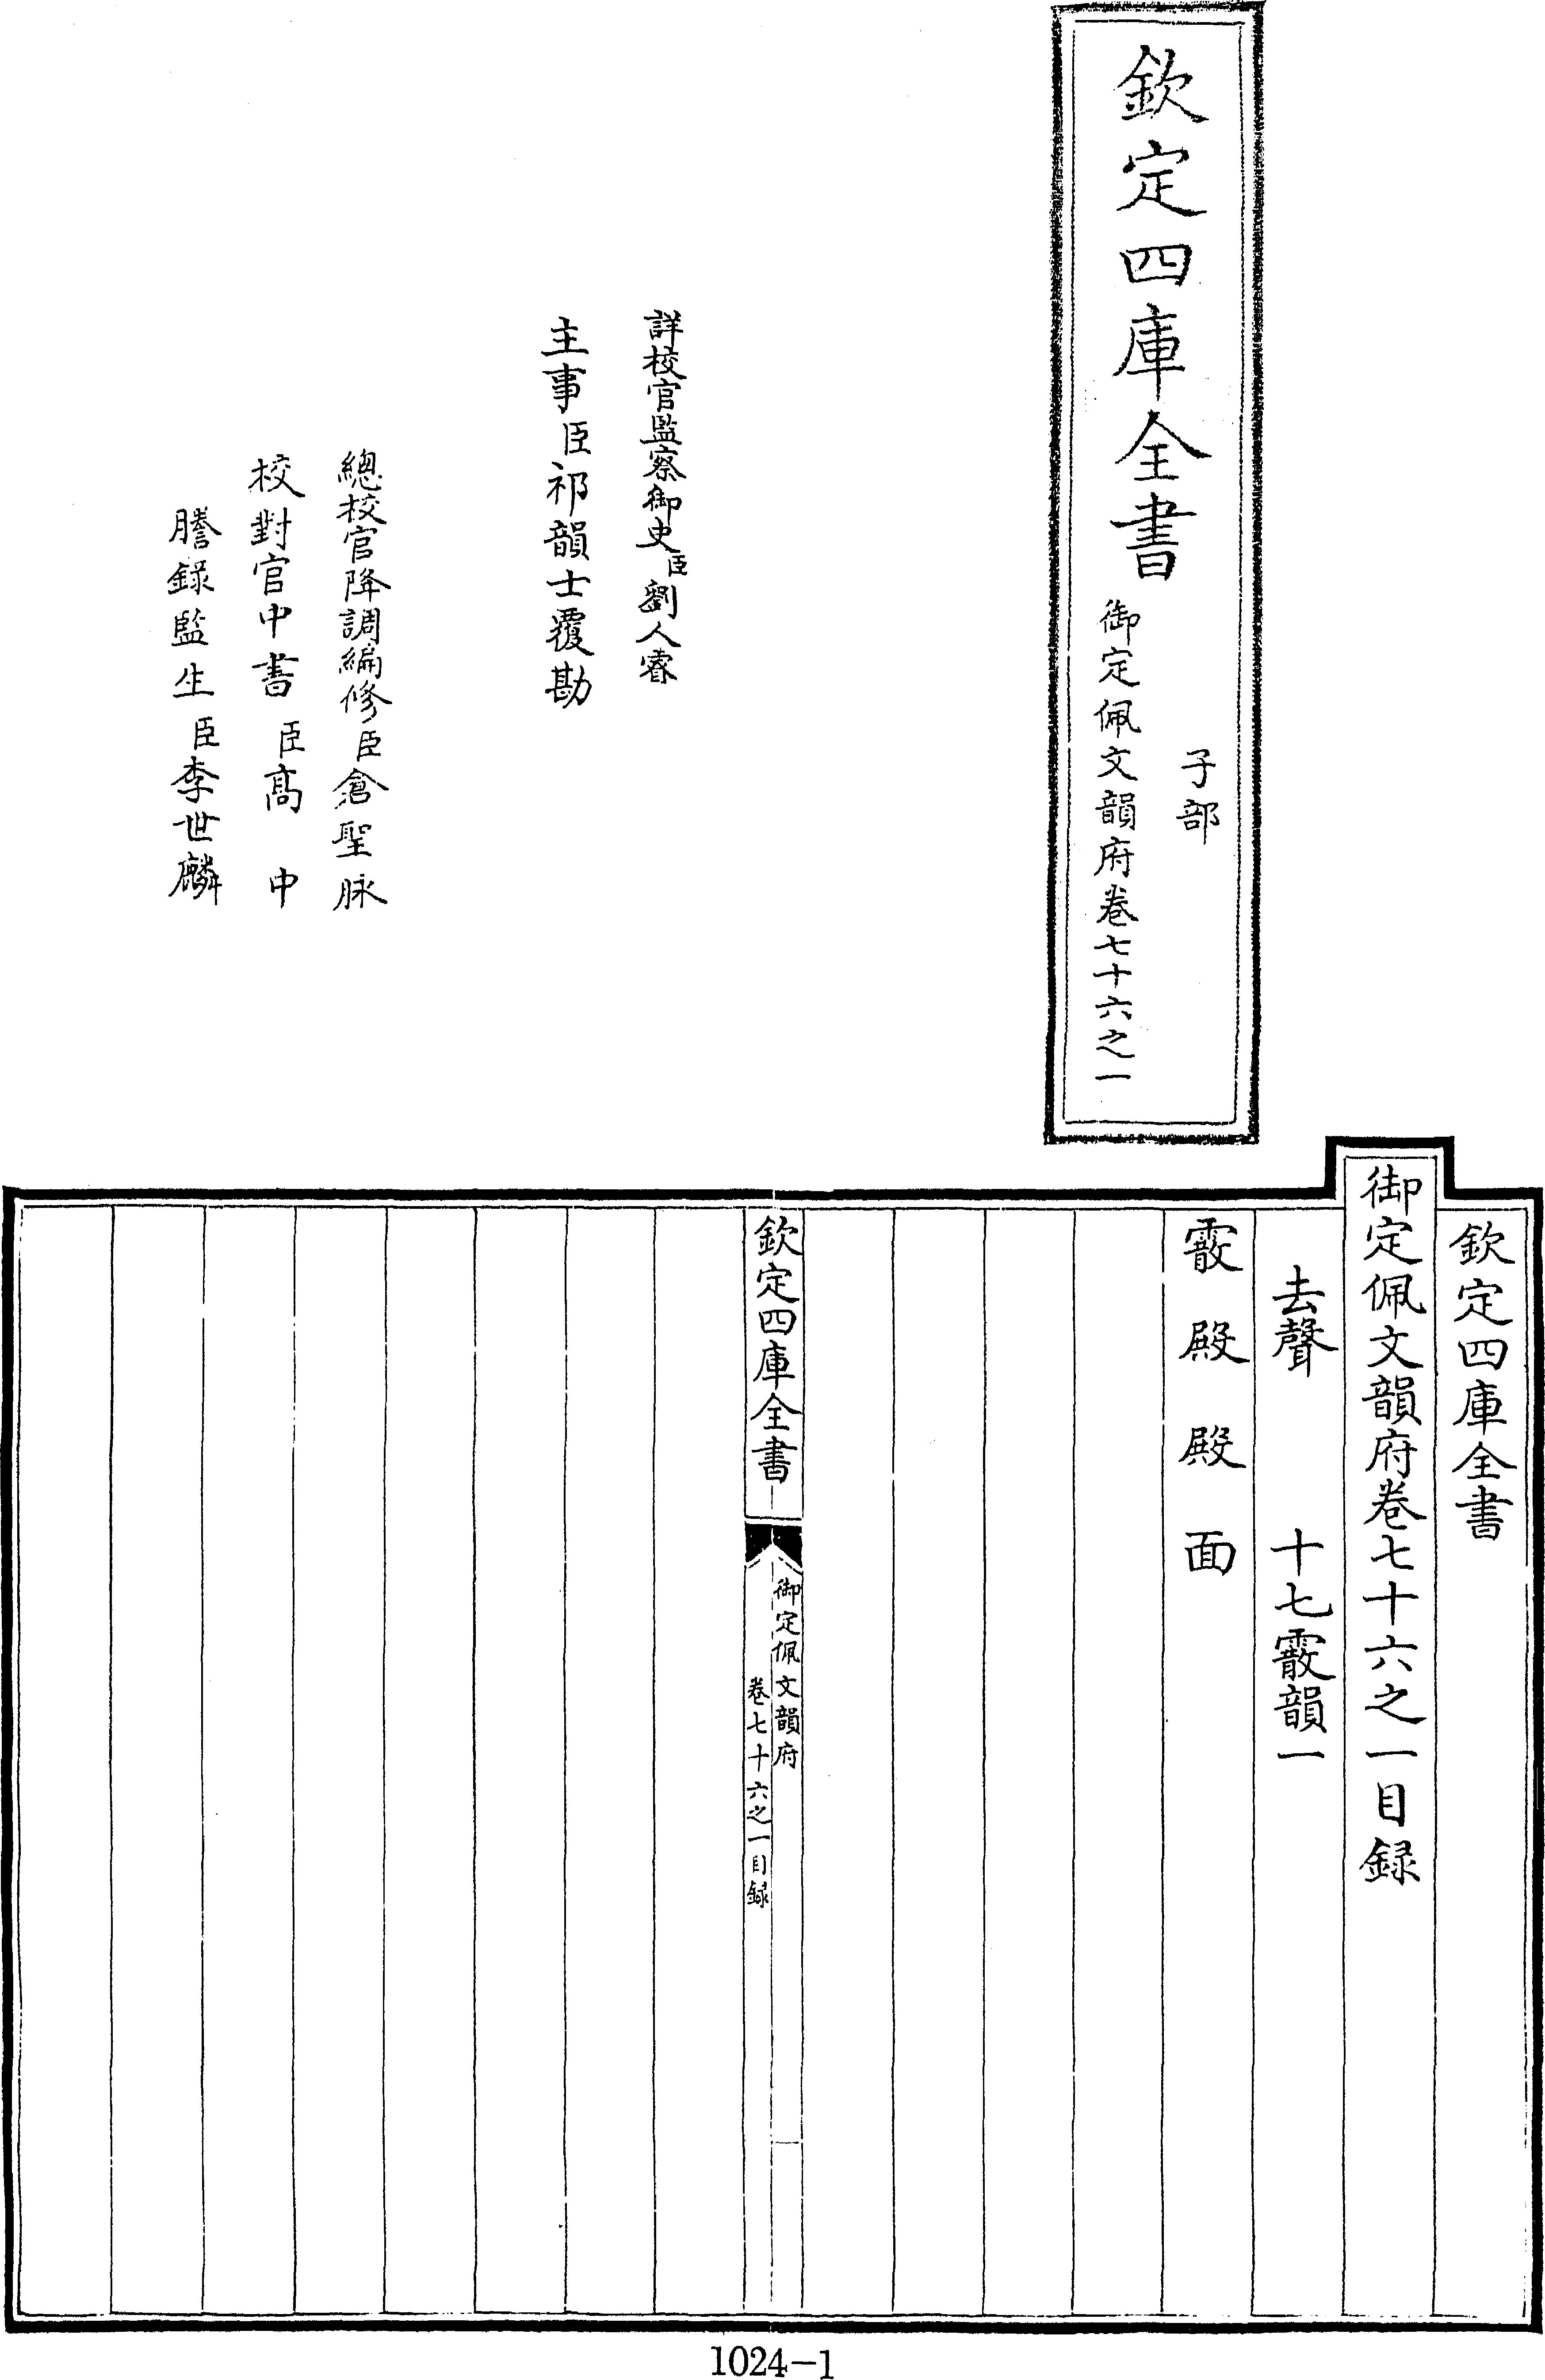 欽定四庫全書
子部
御定佩文韻府卷七十六之一
詳校官監察御史臣劉人睿
主事臣祁韻士覆勘
總校官降調編修臣倉聖脉
校對官中書臣高中
謄錄監生臣李世麟
欽定四庫全書
御定佩文韻府卷七十六之一目録
去聲 十七霰韻一
霰 殿 殿 面
欽定四庫全書
御定佩文韻府
卷七十六之一目録
一
1024-1